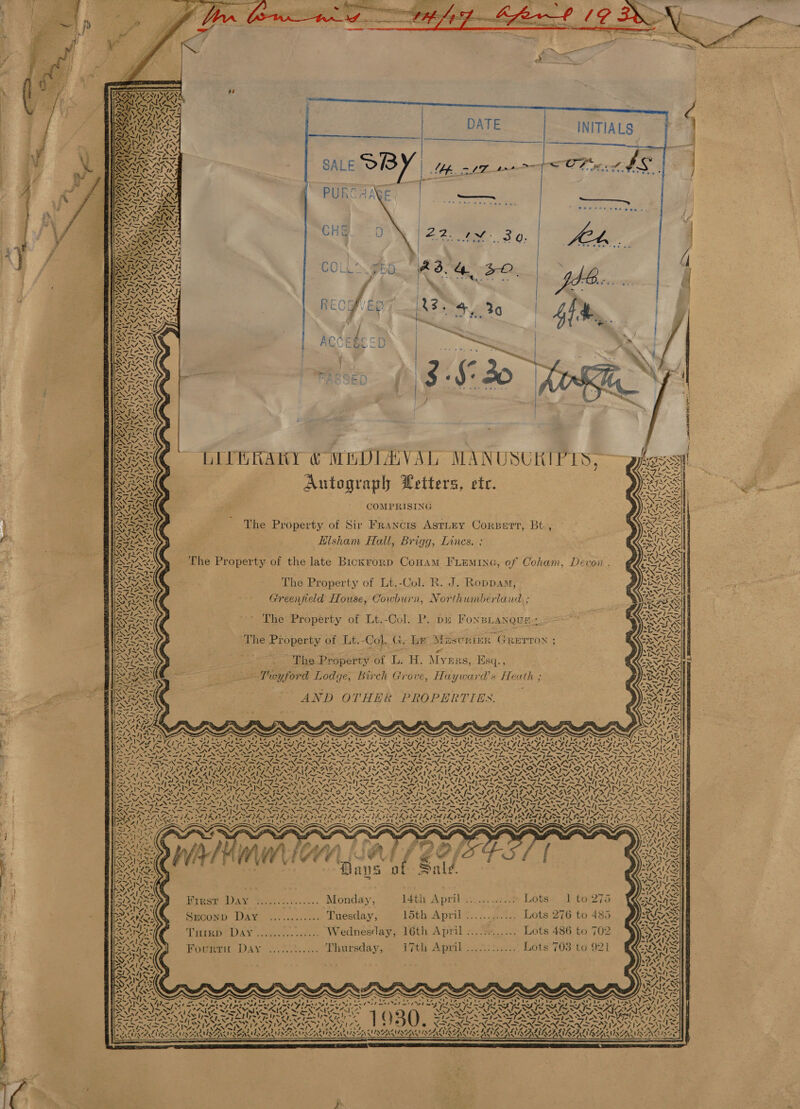 14/17 April 193
DATE INITIALS
SALE SBY 14 - 17
PURCHASE
CHE D 22. IV. 30.
COLL TED 23. 4. 30.
RECEIVED 23. 4. 30
ACCESSED
PASSED 3. 5. 30
LITERARY & MEDIÆVAL MANUSCRIPTS,
Autograph Letters, etc.
COMPRISING
The Property of Sir FRANCIS ASTLEY CORBETT, Bt.,
Elsham Hall, Brigg, Lincs. ;
The Property of the late BICKFORD COHAM FLEMING, of Coham, Devon .
The Property of Lt.-Col. R. J. RODDAM,
Greenfield House, Cowburn, Northumberland ;
The Property of Lt.-Col. P. DE FONBLANQUE ;
The Property of Lt.-Col. G. LE MESURIER GRETTON ;
The Property of L. H. MYERS, Esq.,
Twyford Lodge, Birch Grove, Hayward's Heath ;
AND OTHER PROPERTIES.
Days of Sale.
FIRST DAY ............... Monday, 14th April ............ Lots 1 to 275
SECOND DAY ............ Tuesday, 15th April ............ Lots 276 to 485
THIRD DAY ............... Wednesday, 16th April ............ Lots 486 to 702
FOURTH DAY ............ Thursday, 17th April ............ Lots 703 to 921
1930.